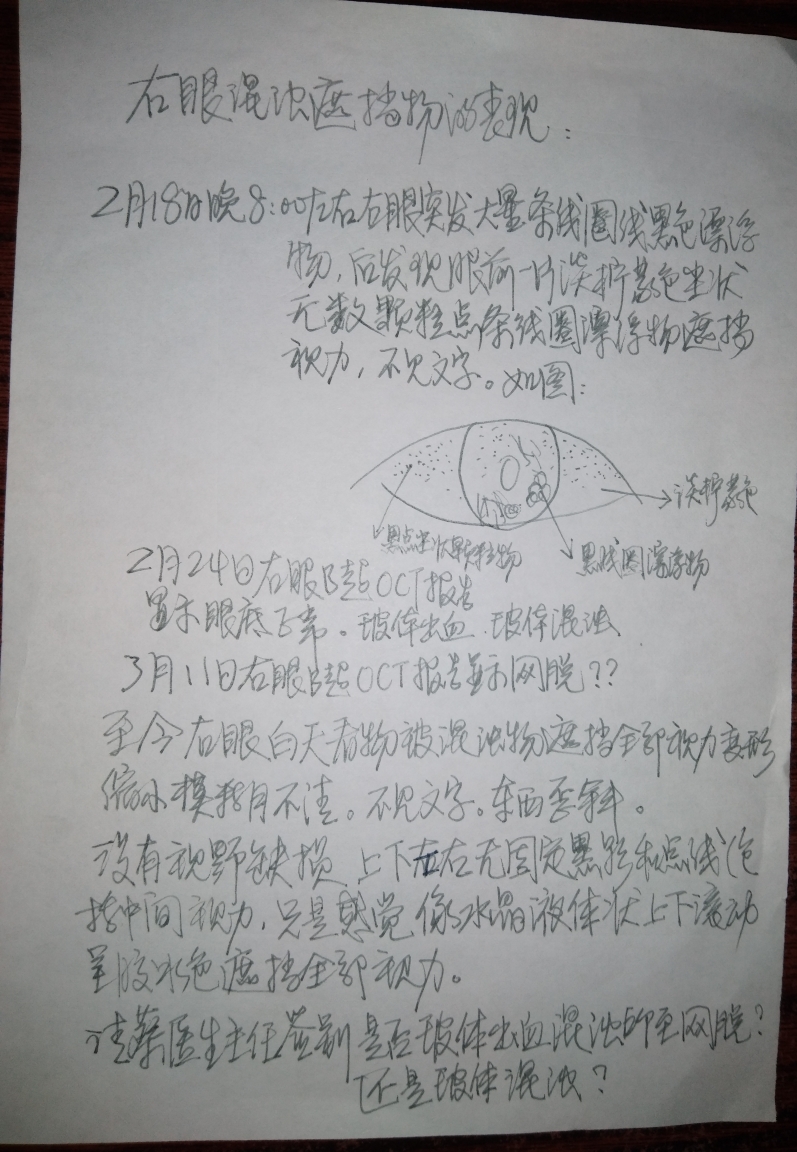 右眼混浊遮挡物的表现:
2月18日晚8:00左右右眼突发大量条线圈线黑色漂浮
物,后发现眼前一片淡柠蒙色尘状
无数颗粒点条线圈漂浮物遮挡
视力,不见文字。如图:
淡柠蒙色
黑点尘状颗粒物
黑线圈漂浮物
2月24日右眼B超OCT报告
显示眼底正常。玻体出血.玻体混浊
3月11日右眼B超OCT报告显示网脱??
至今右眼白天看物被混浊物遮挡全部视力变形
缩小模糊不清。不见文字。东西歪斜。
没有视野缺损,上下左右无固定黑影和点线(包
括中间视力,只是感觉像水晶液体状上下滚动
呈胶水色遮挡全部视力。
请蔡医生主任鉴别是否玻体出血混浊所至网脱?
还是玻体混浊?